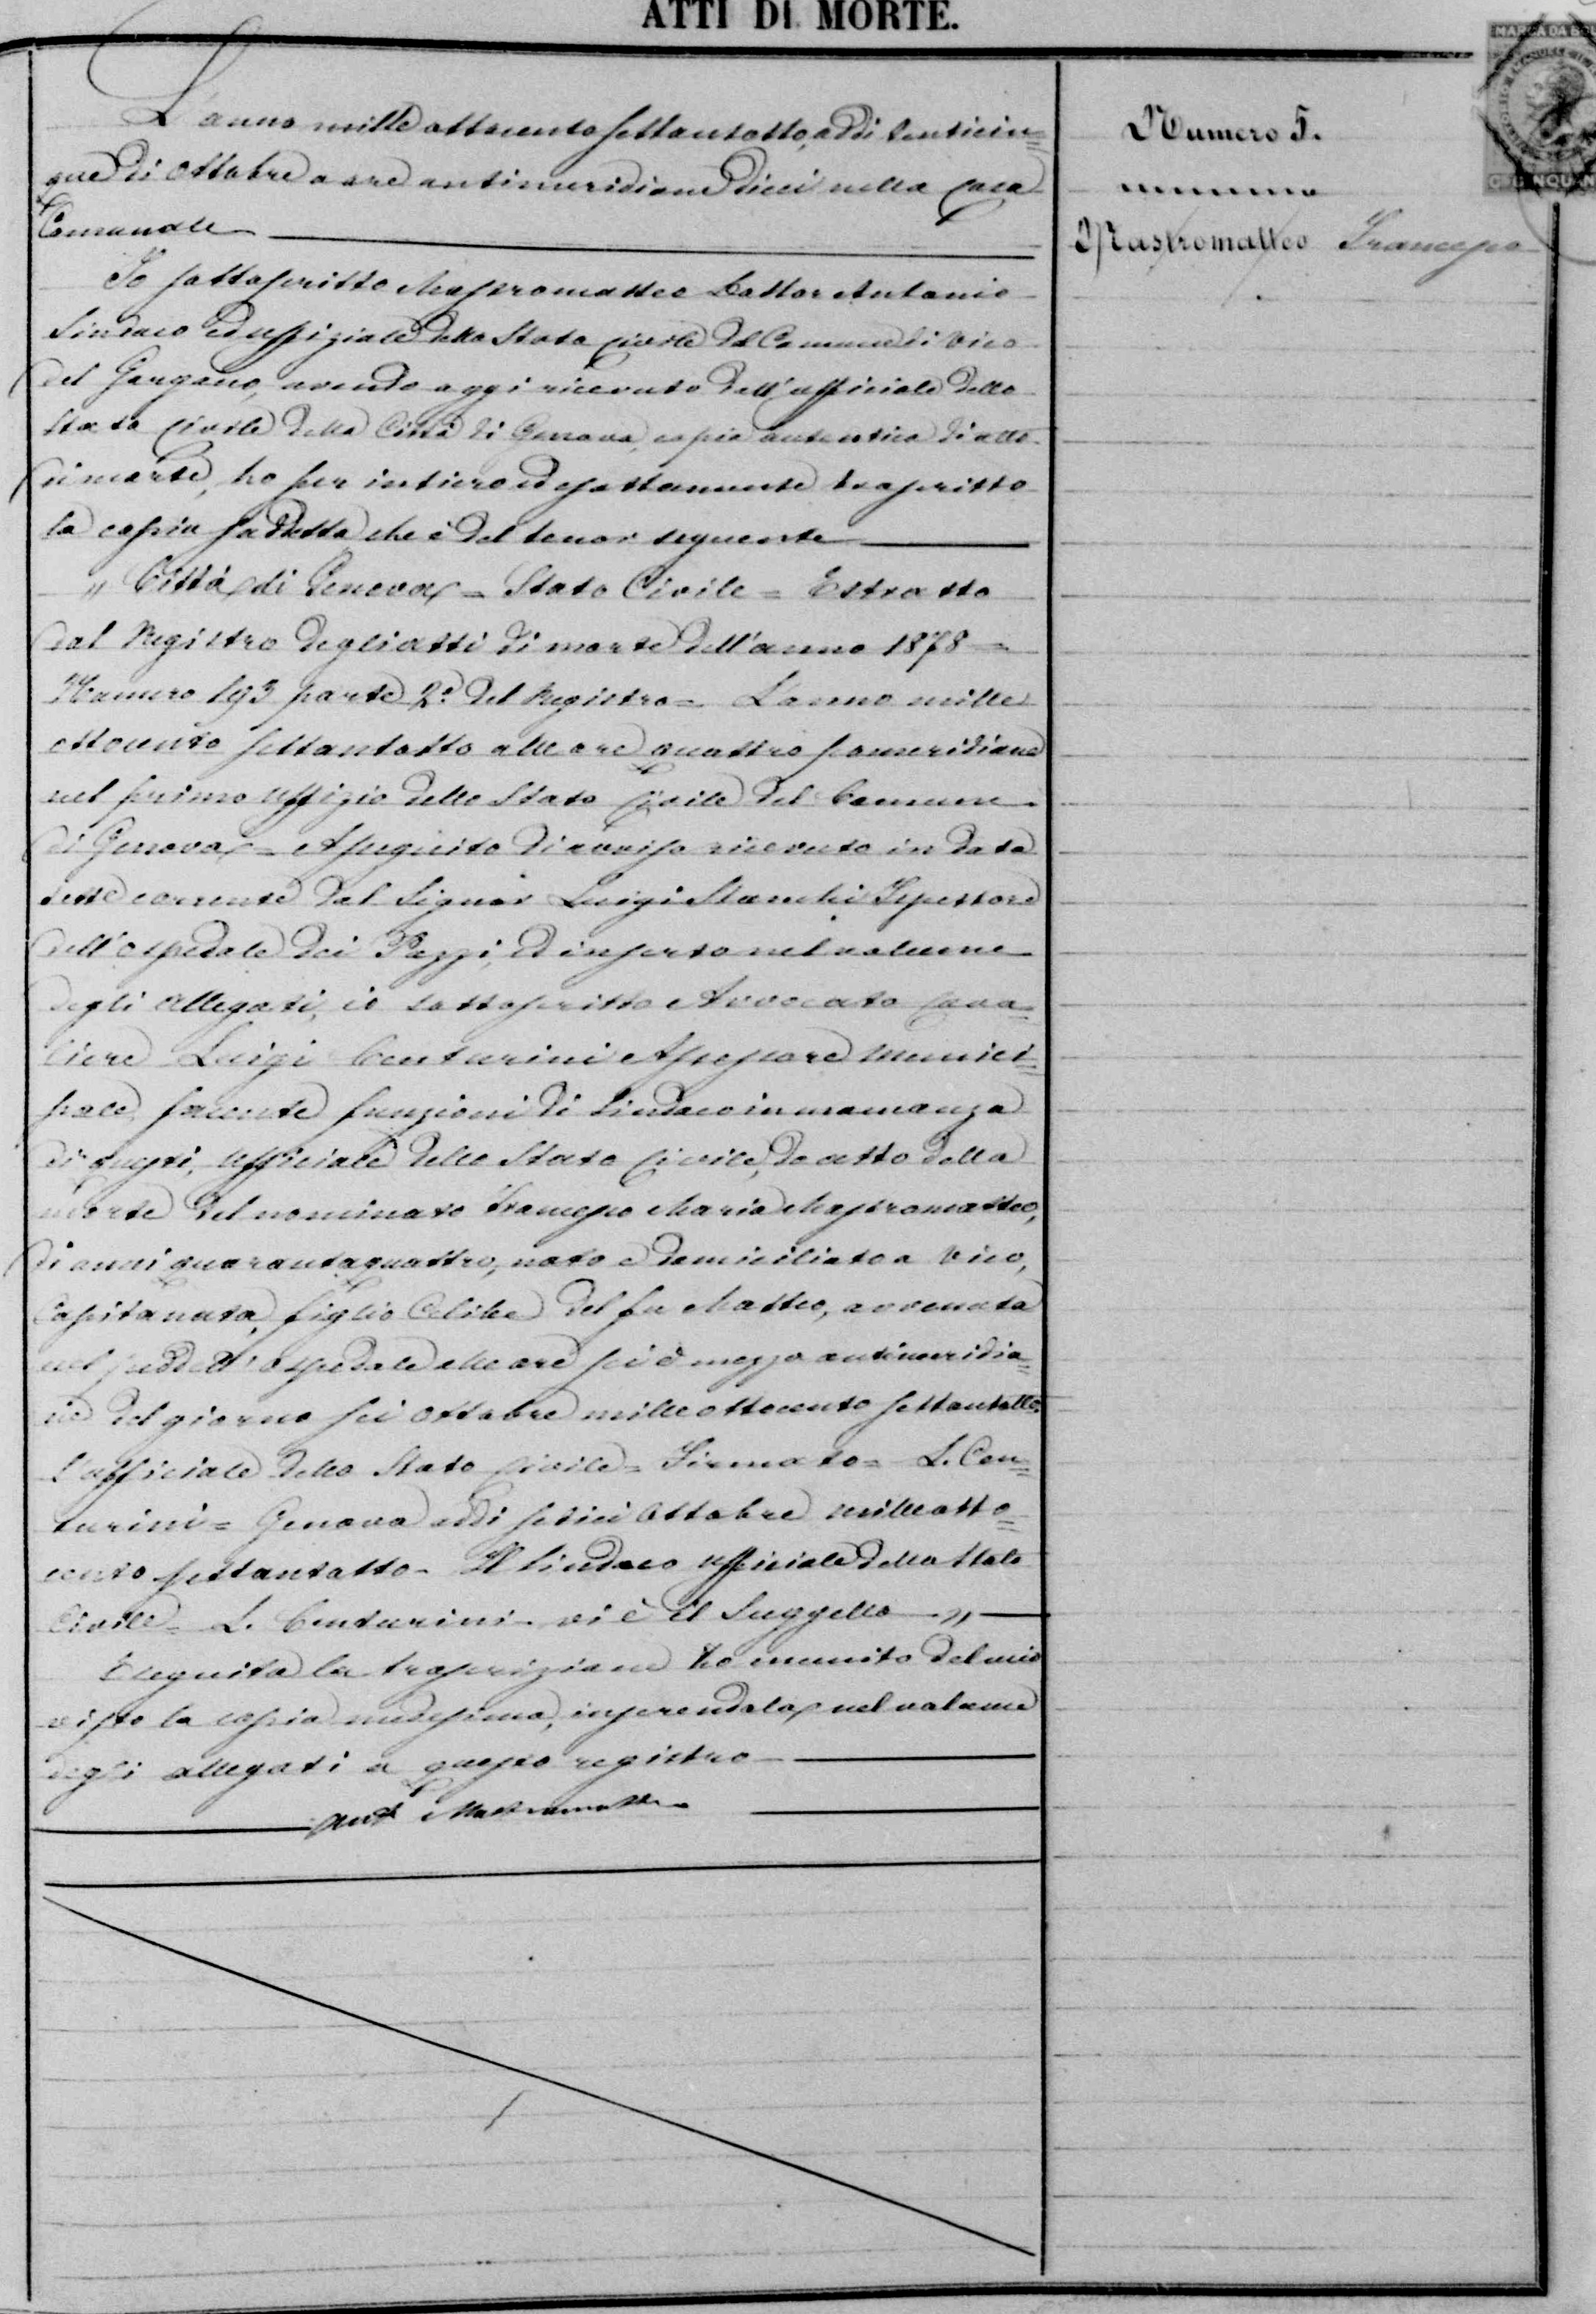 ATTI DI MORTE.
MARCA DA BOLLO
Numero 5.
Mastromatteo Francesco
L'anno mille ottocento settantotto, addì venticin=
que di Ottobre a ore antimeridiane dieci nella Casa
Comunale
Io sottoscritto Mastromatteo Dottor Antonio
Sindaco ed uffiziale dello Stato Civile del Comune di Vico
del Gargano, avendo oggi ricevuto dall'ufficiale dello
Stato Civile della Città di Genova, copia autentica di atto
di morte, ho per intiero ed esattamente trascritto
la copia suddetta che è del tenor seguente
" Città di Genova = Stato Civile = Estratto
dal Registro degli atti di morte dell'anno 1878 =
Numero 193 parte 2ª del Registro = L'anno mille
ottocento settantotto alle ore quattro pomeridiane
nel primo uffizio dello Stato Civile del Comune
di Genova = A seguito di avviso ricevuto in data
sette corrente dal Signor Luigi Ispettore
dell'ospedale dei Pazzi, ed inserto nel volume
degli allegati, io sottoscritto Avvocato Cava=
liere Luigi Centurini Assessore Munici=
pale, facente funzioni di Sindaco in mancanza
di questi, Ufficiale dello Stato Civile, do atto della
morte del nominato Francesco Maria Mastromatteo,
di anni quarantaquattro, nato e domiciliato a Vico,
Capitanata, figlio Celibe del fu Matteo, avvenuta
nel suddett' ospedale alle ore sei e mezzo antimeridia=
ne del giorno sei Ottobre mille ottocento settantotto.
L'ufficiale dello Stato Civile = Firmato = L. Cen=
turini = Genova addì sedici Ottobre mille otto=
cento settantotto = Il Sindaco Ufficiale dello Stato
Civile = L. Centurini = vi è il Suggello = "
Eseguita la trascrizione ho munito del mio
visto la copia medesima, inserendola nel volume
degli allegati a questo registro
Ant. Mastromatteo